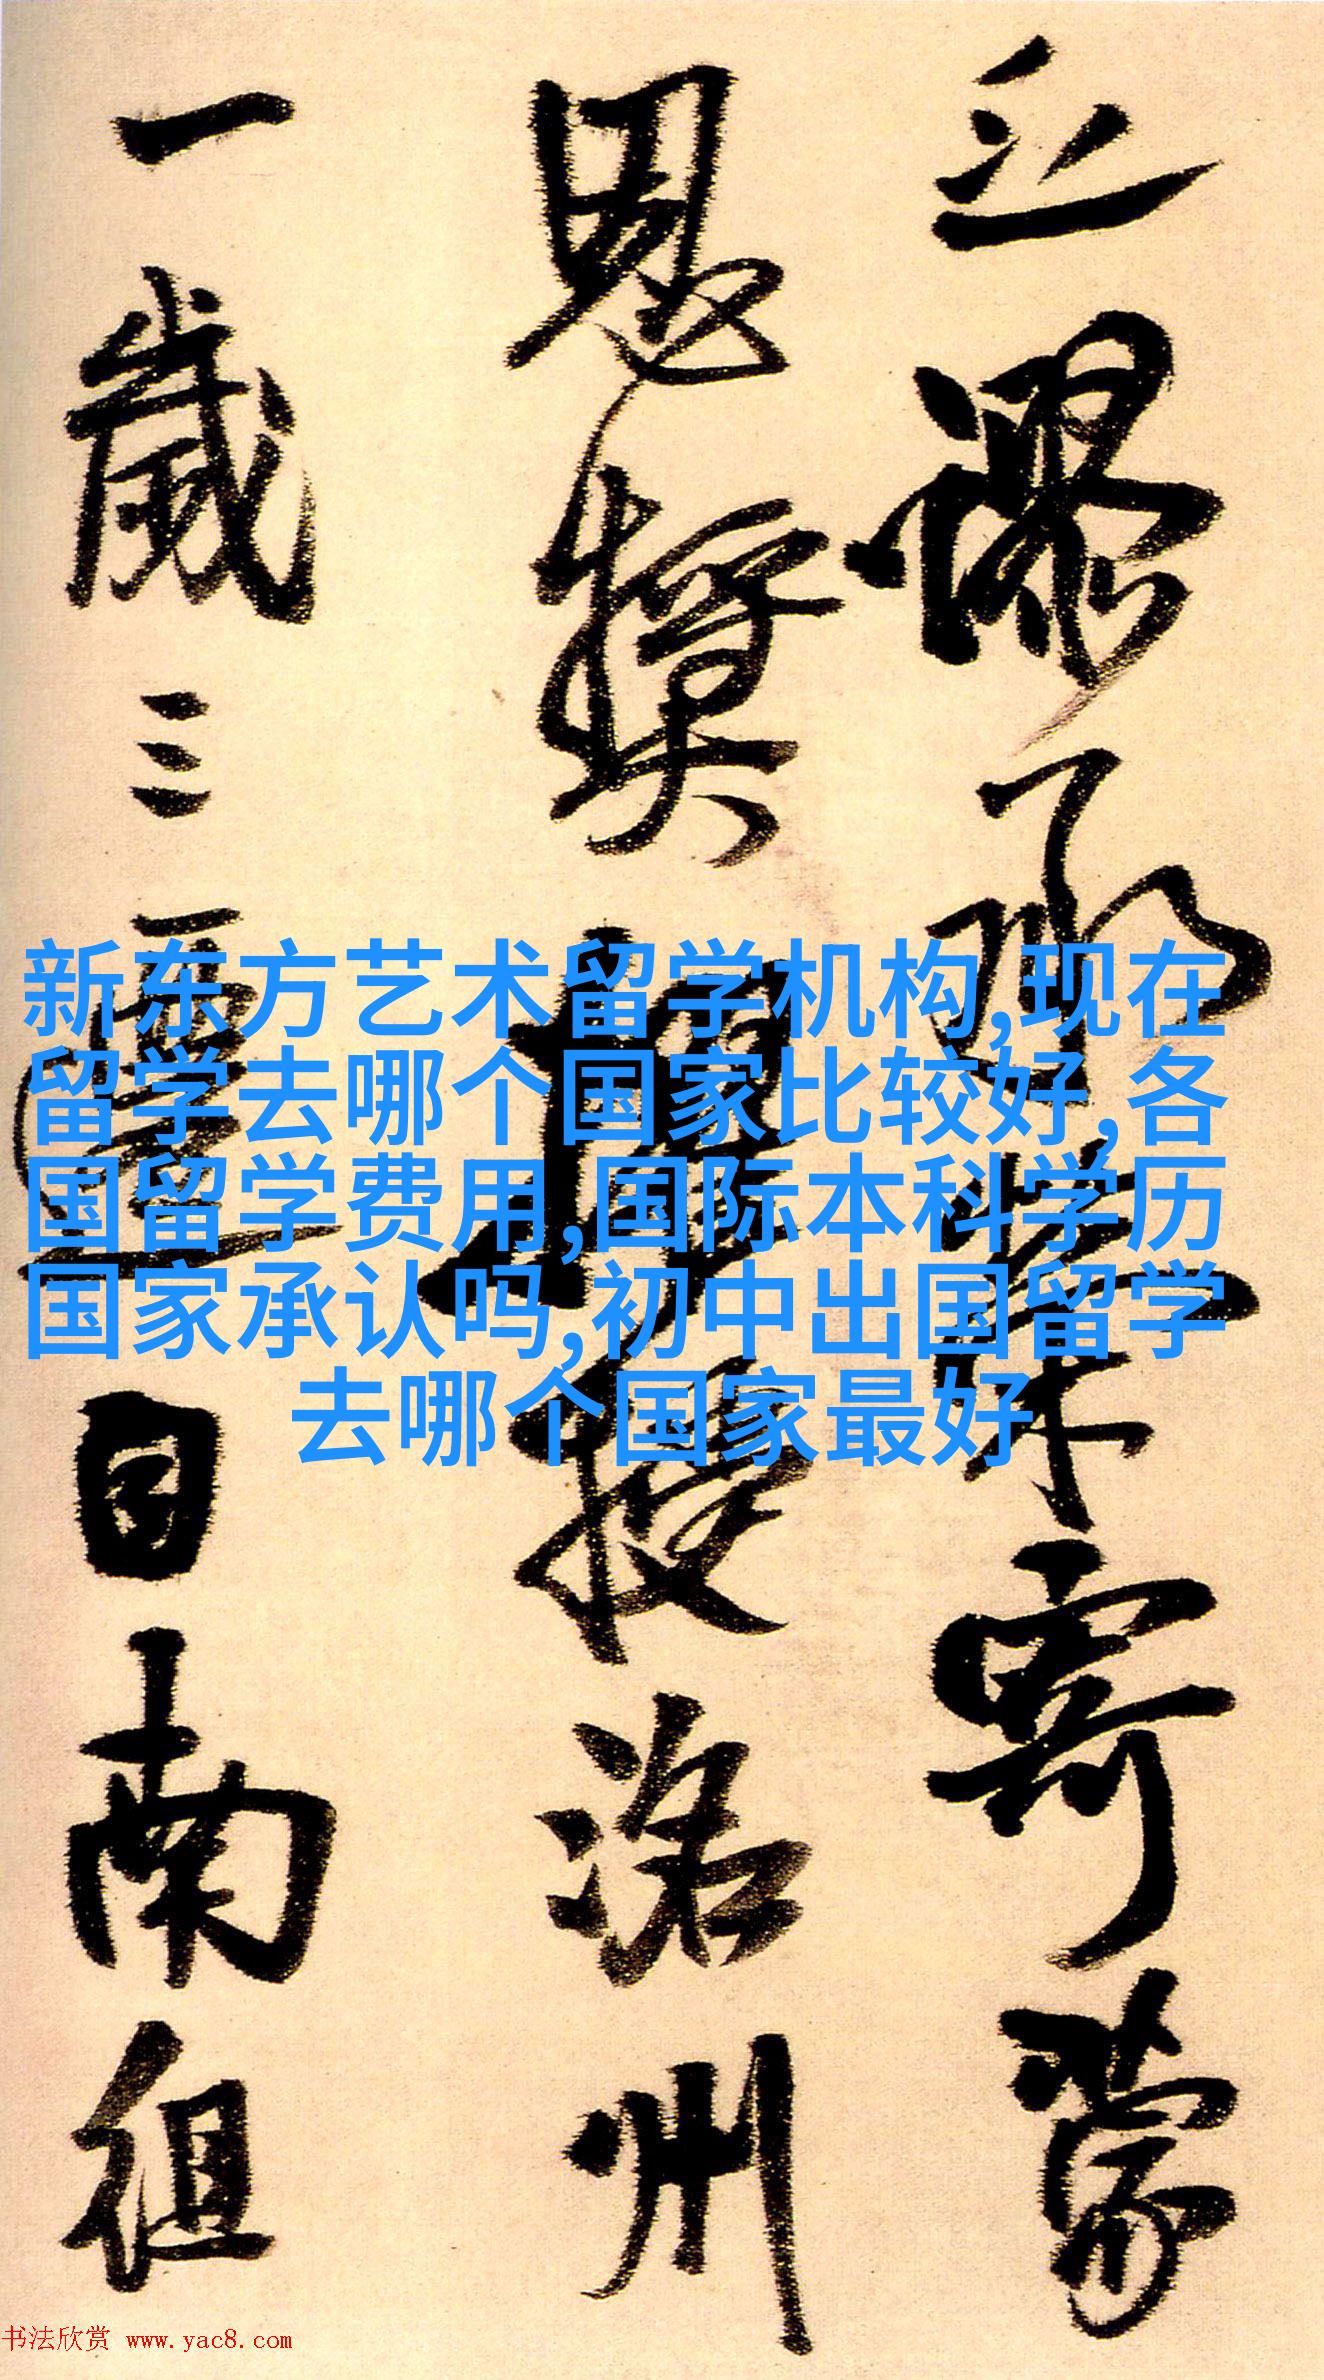 謬承榮寄蒙
恩獎擢授洛州
一歲三遷自南徂
新东方艺术留学机构,现在
留学去哪个国家比较好,各
国留学费用,国际本科学历
国家承认吗,初中出国留学
去哪个国家最好
书法欣赏 www.yac8.com